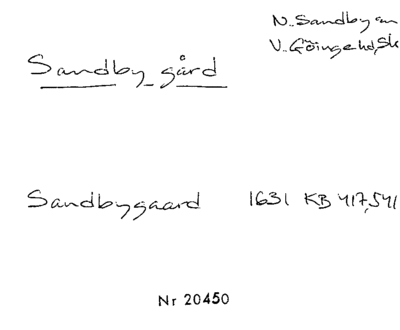 N. Sandby sn
V. Göinge hd, Sk
Sandby gård
Sandbygaard 1631 KB 417,541
Nr 20450